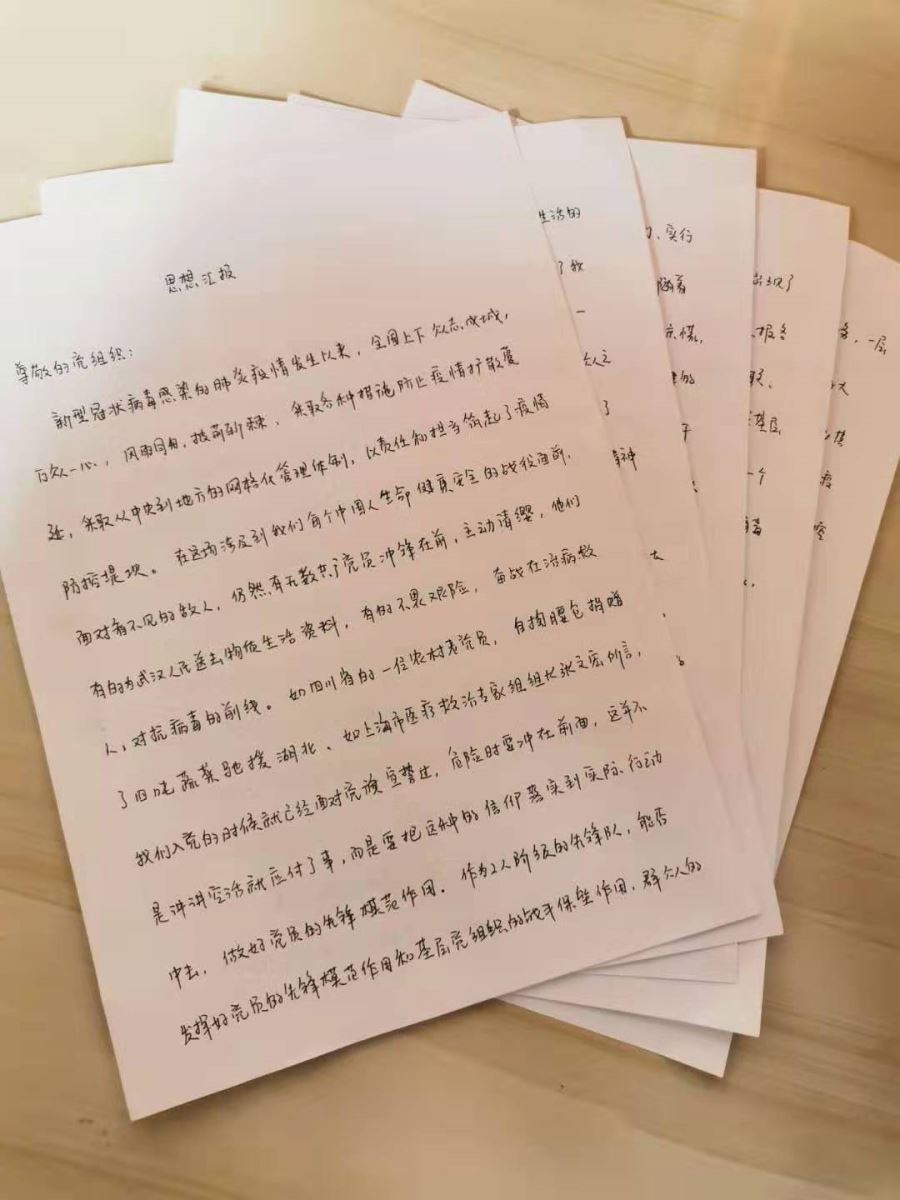 思想汇报
尊敬的党组织：
新型冠状病毒感染的肺炎疫情发生以来，全国上下众志成城，
万众一心，风雨同舟，披荆斩棘，采取各种措施防止疫情扩散蔓
延，采取从中央到地方的网格化管理体制，以责任和担当筑起了疫情
防控堤坝。在这场涉及到我们每个中国人生命健康安全的战役面前，
面对看不见的敌人，仍然有无数共产党员冲锋在前，主动请缨，他们
有的为武汉人民送去物质生活资料，有的不畏艰险，奋战在治病救
人，对抗病毒的前线。如四川省的一位农村老党员，自掏腰包捐赠
了旧吨蔬菜驰援湖北、如上海市医疗救治专家组组长张文宏所言，
我们入党的时候就已经面对党旗宣誓过，危险时要冲在前面，这并不
是讲讲空话就应付了事，而是要把这种的信仰落实到实际行动
中去，做好党员的先锋模范作用。作为工人阶级的先锋队，能否
发挥好党员的先锋模范作用和基层党组织的战斗堡垒作用，群众人的
生活的
了我
一
众之
了
精神
、实行
随着
的
出现了
报名
基层
一个
，一层
大